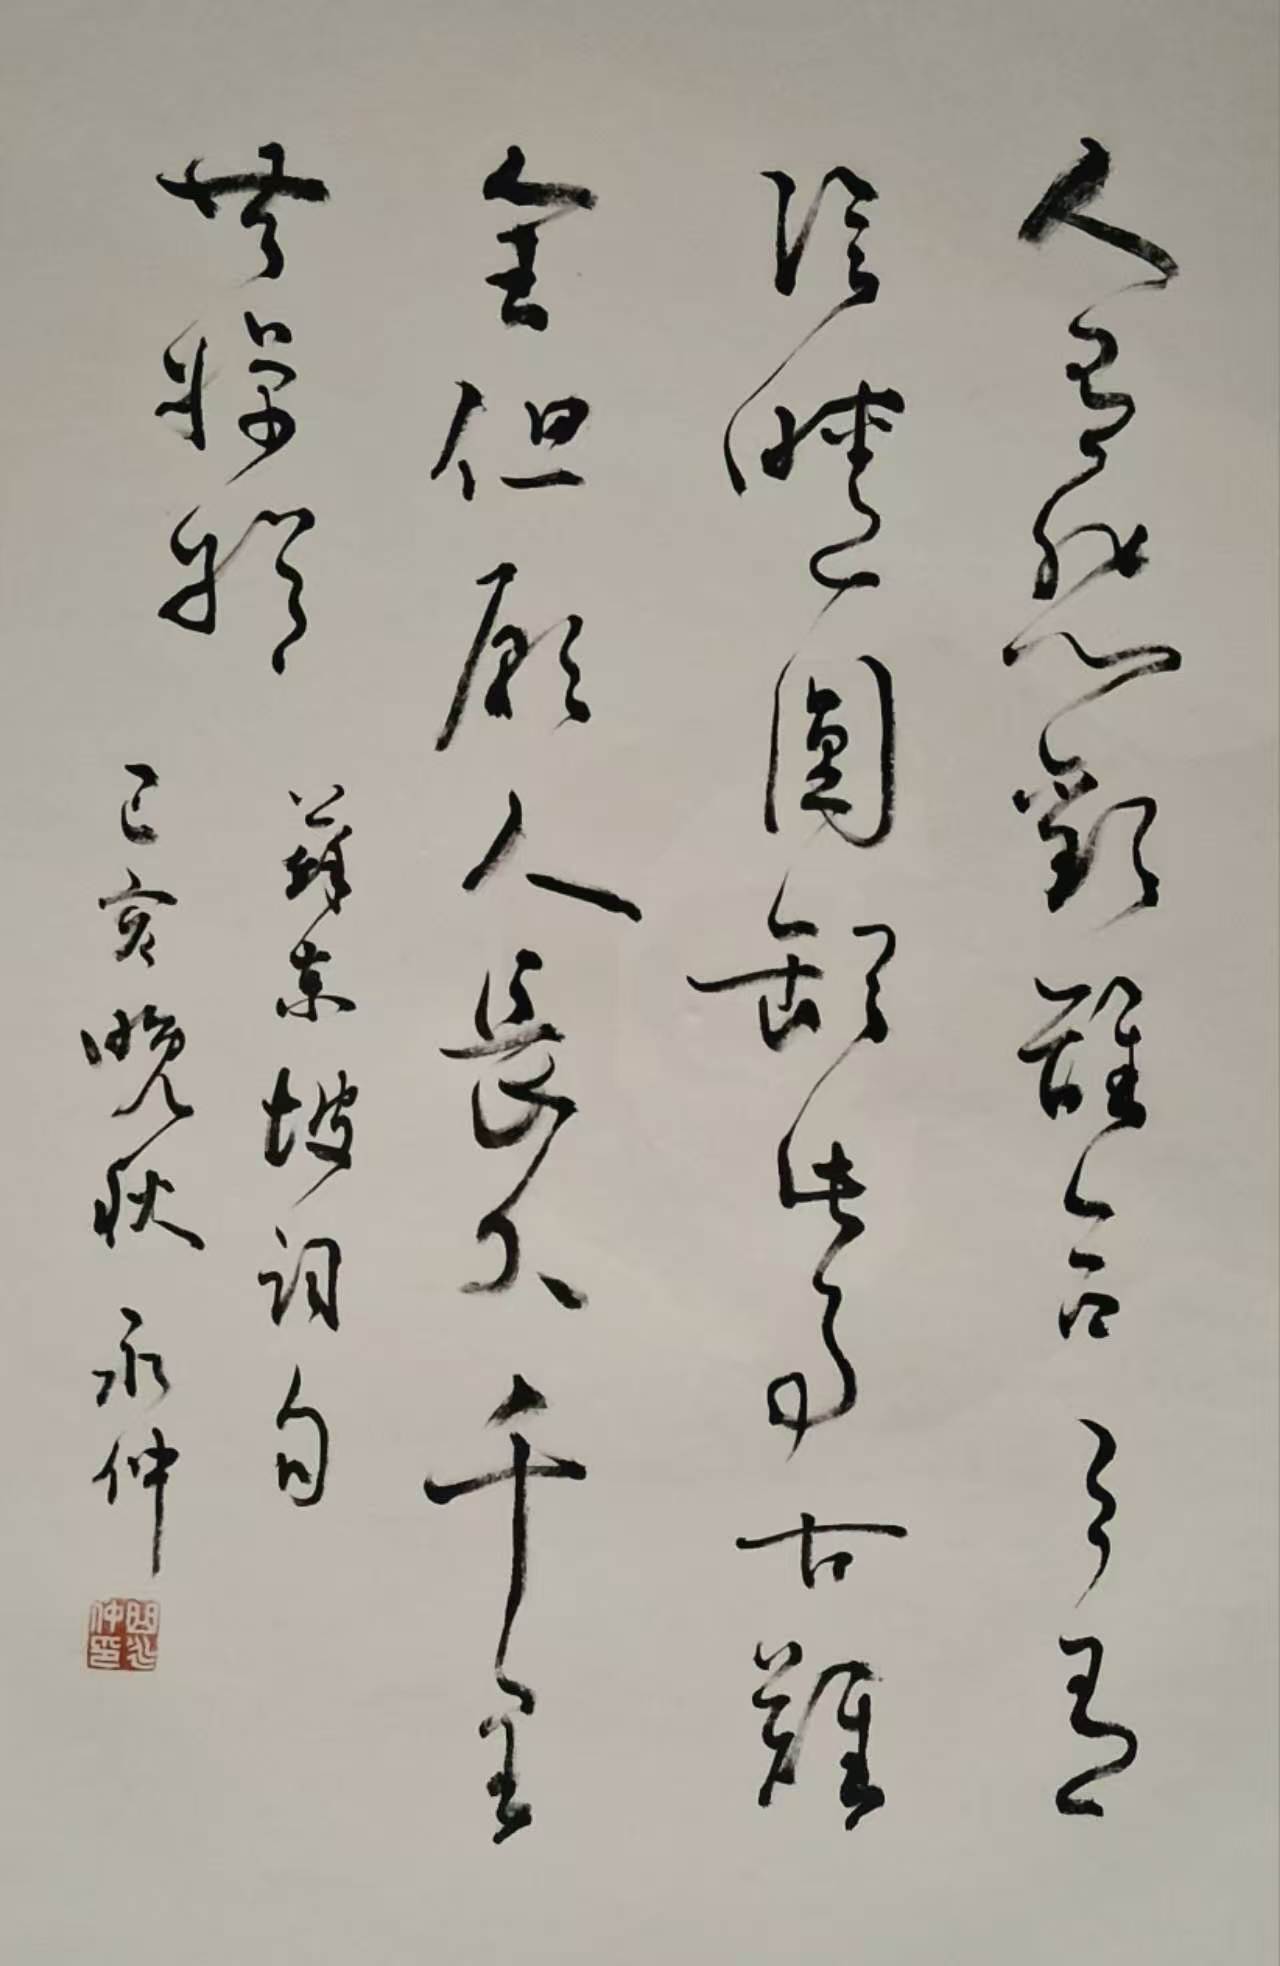 人有悲歡離合月有
陰晴圓缺此事古難
全但願人長久千里
共嬋娟
蘇東坡詞句
己亥晚秋 永仲